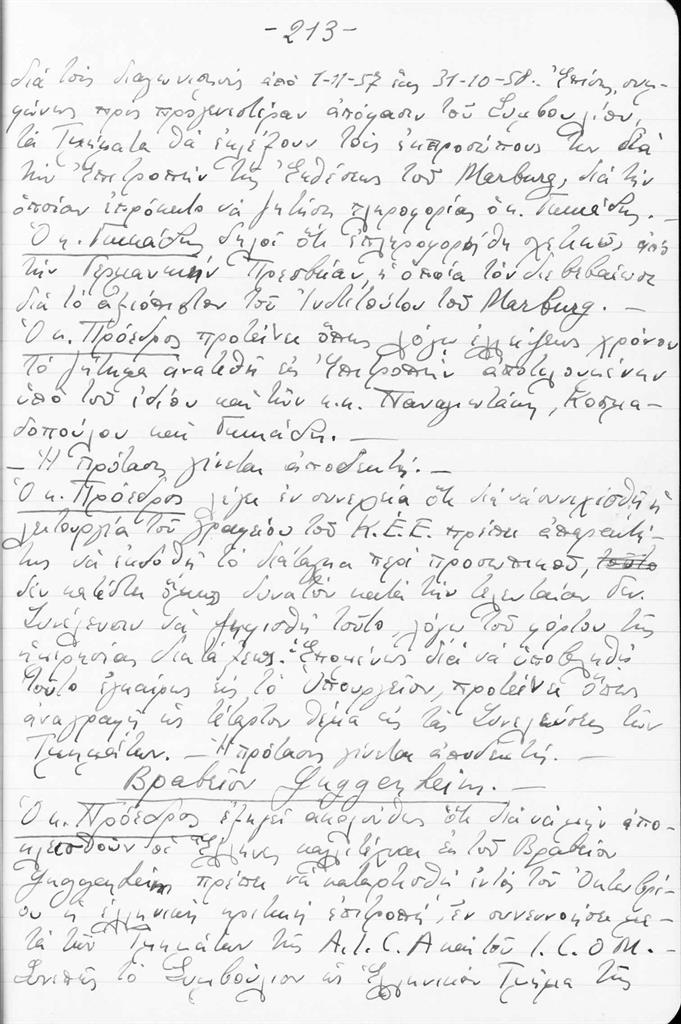 -213-
διὰ τοὺς διαγωνισμοὺς ἀπὸ 1-11-57 ἕως 31-10-58.- Ἐπίσης, συμ-
φώνως πρὸς προγενεστέραν ἀπόφασιν τοῦ Συμβουλίου,
τὰ Τμήματα θὰ ἐκλέξουν τοὺς ἐκπροσώπους των διὰ
τὴν Ἐπιτροπὴν τῆς Ἐκθέσεως τοῦ Marburg, διὰ τὴν
ὁποίαν ἐπρόκειτο νὰ ζητήσῃ πληροφορίας ὁ κ.
Ὁ κ. δηλοῖ ὅτι ἐπληροφορήθη σχετικῶς ἀπὸ
τὴν Γερμανικὴν Πρεσβείαν, ἡ ὁποία τὸν διεβεβαίωσε
διὰ τὸ ἀξιόπιστον τοῦ Ἰνστιτούτου τοῦ Marburg. -
Ὁ κ. Πρόεδρος προτείνει ὅπως λόγῳ ἐλλείψεως χρόνου
τὸ ζήτημα ἀνατεθῇ εἰς Ἐπιτροπὴν ἀποτελουμένην
ὑπὸ τοῦ ἰδίου καὶ τῶν κ.κ. Παναγιωτάκη, Κοσμα-
δοπούλου καὶ
- Ἡ πρότασις γίνεται ἀποδεκτή. -
Ὁ κ. Πρόεδρος λέγει ἐν συνεχείᾳ ὅτι διὰ νὰ συνεχισθῇ ἡ
λειτουργία τοῦ γραφείου τοῦ Κ.Ε.Ε. πρέπει ἀπαραιτή-
τως νὰ ἐκδοθῇ τὸ διάταγμα περὶ προσωπικοῦ, τοῦτο
δὲν κατέστη ὅμως δυνατὸν κατὰ τὴν τελευταίαν Γεν.
Συνέλευσιν νὰ ψηφισθῇ τοῦτο, λόγῳ τοῦ φόρτου τῆς
ἡμερησίας διατάξεως. Ἑπομένως διὰ νὰ ὑποβληθῇ
τοῦτο ἐγκαίρως εἰς τὸ Ὑπουργεῖον, προτείνει ὅπως
ἀναγραφῇ ὡς τέταρτον θέμα εἰς τὰς Συνελεύσεις τῶν
Τμημάτων. - Ἡ πρότασις γίνεται ἀποδεκτή. -
Βραβεῖον Guggenheim. -
Ὁ κ. Πρόεδρος ἐξηγεῖ ἀκολούθως ὅτι διὰ νὰ μὴν ἀπο-
κλεισθοῦν οἱ Ἕλληνες καλλιτέχναι ἐκ τοῦ Βραβείου
Guggenheim πρέπει νὰ καταρτισθῇ ἐντὸς τοῦ Ὀκτωβρί-
ου ἡ ἑλληνικὴ κριτικὴ ἐπιτροπή, ἐν συνεννοήσει με-
τὰ τῶν Τμημάτων τῆς A.I.C.A καὶ τοῦ I.C.O.M. -
Συνεπῶς τὸ Συμβούλιον ὡς Ἑλληνικὸν Τμῆμα τῆς